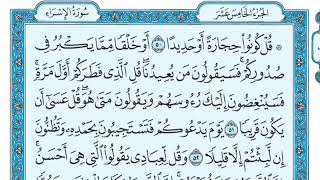 الجزء الخامس عشر
سورة الإسراء
۞ قُلْ كُونُوا۟ حِجَارَةً أَوْ حَدِيدًا ٥٠ أَوْ خَلْقًا مِّمَّا يَكْبُرُ فِى
صُدُورِكُمْ ۚ فَسَيَقُولُونَ مَن يُعِيدُنَا ۖ قُلِ ٱلَّذِى فَطَرَكُمْ أَوَّلَ مَرَّةٍ ۚ
فَسَيُنْغِضُونَ إِلَيْكَ رُءُوسَهُمْ وَيَقُولُونَ مَتَىٰ هُوَ ۖ قُلْ عَسَىٰٓ أَن
يَكُونَ قَرِيبًا ٥١ يَوْمَ يَدْعُوكُمْ فَتَسْتَجِيبُونَ بِحَمْدِهِۦ وَتَظُنُّونَ
إِن لَّبِثْتُمْ إِلَّا قَلِيلًا ٥٢ وَقُل لِّعِبَادِى يَقُولُوا۟ ٱلَّتِى هِىَ أَحْسَنُ ۚ